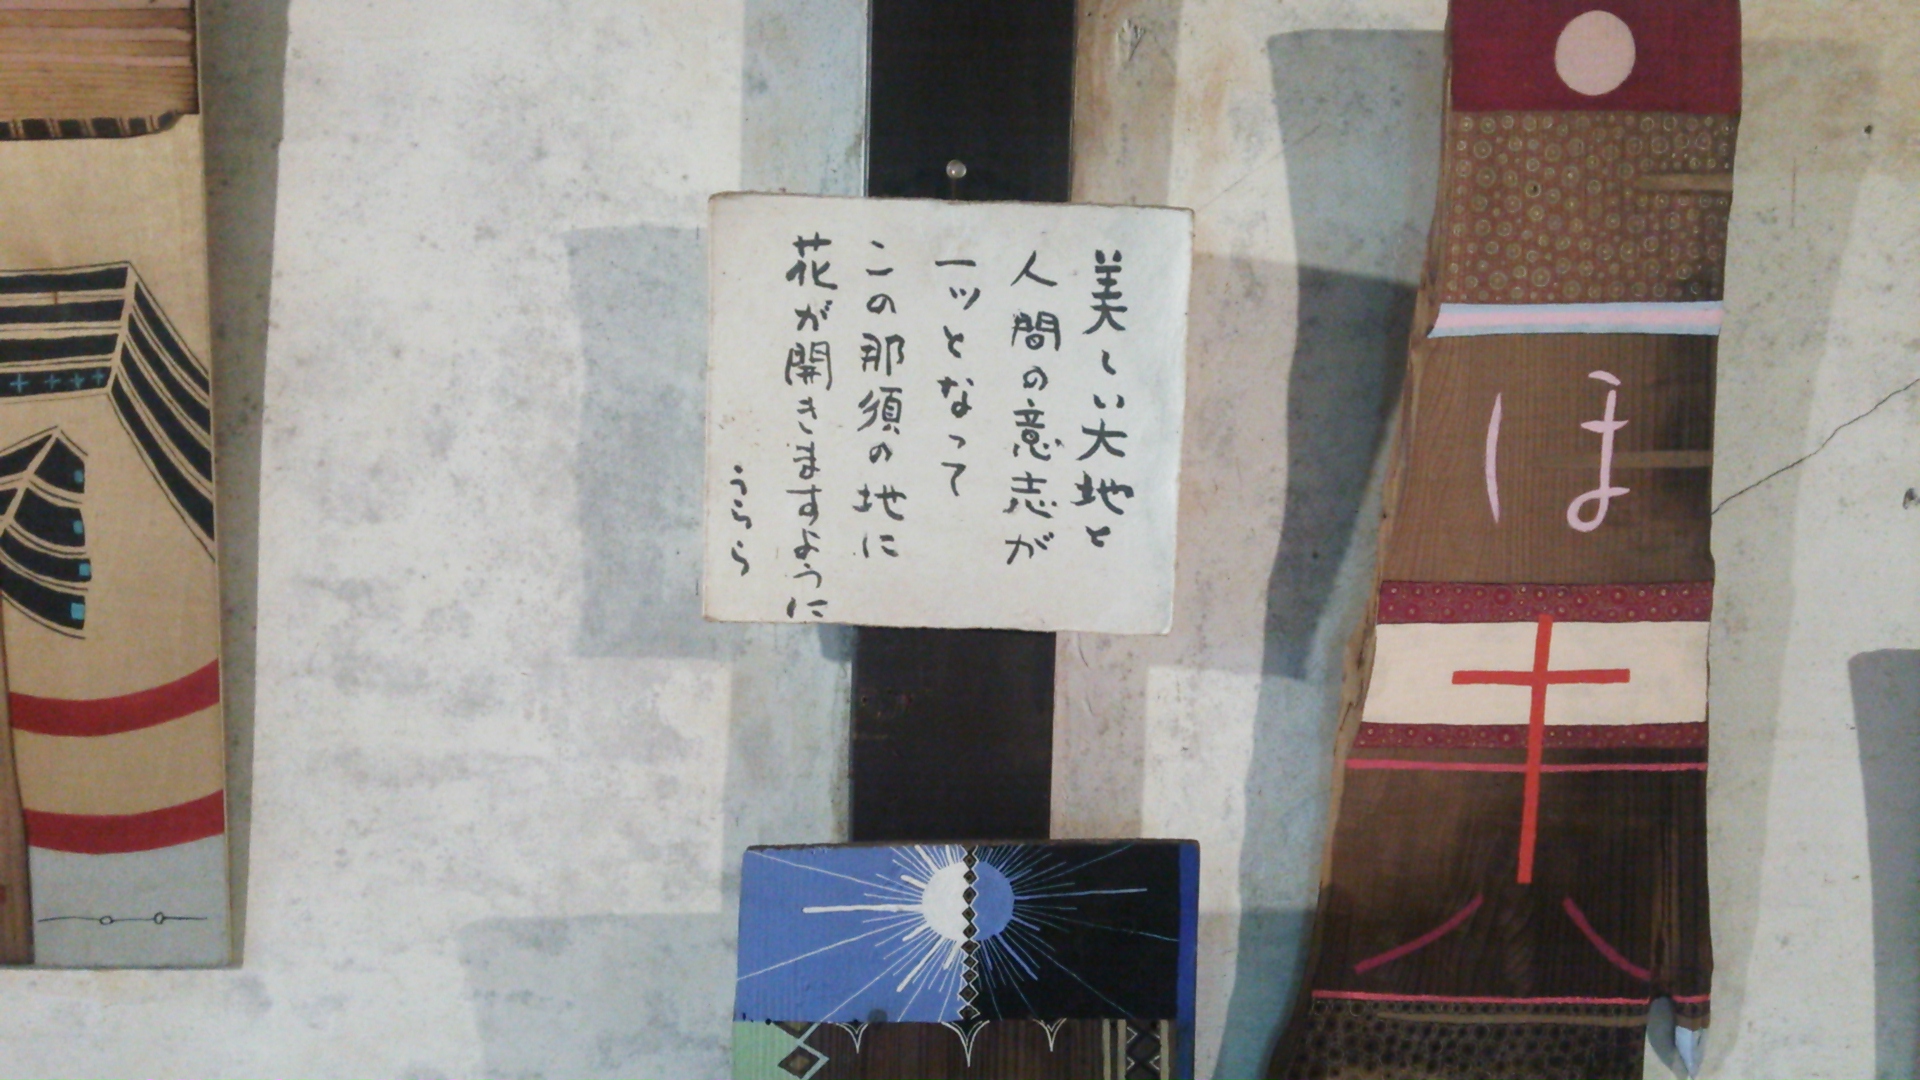 美しい大地と
人間の意志が
一ッとなって
この那須の地に
花が開きますように
うらら
ほ